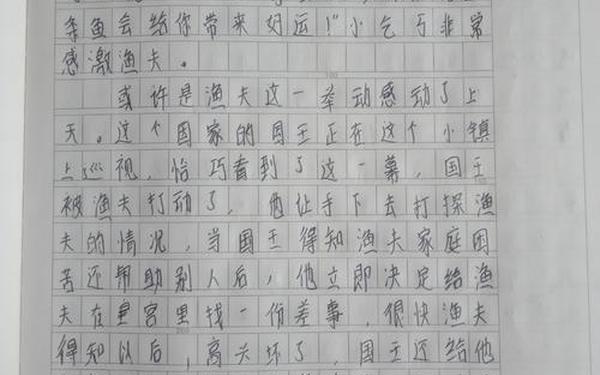 条鱼会给你带来好运！"小乞丐非常
感激渔夫。
或许是渔夫这一举动感动了上
天。这个国家的国王正在这个小镇
上巡视，恰巧看到了这一幕，国王
被渔夫打动了，他让手下去打探渔
夫的情况，当国王得知渔夫家庭困
苦还帮助别人后，他立即决定给渔
夫在皇宫里找一份差事，很快渔夫
得知以后，高兴坏了，国王还给他